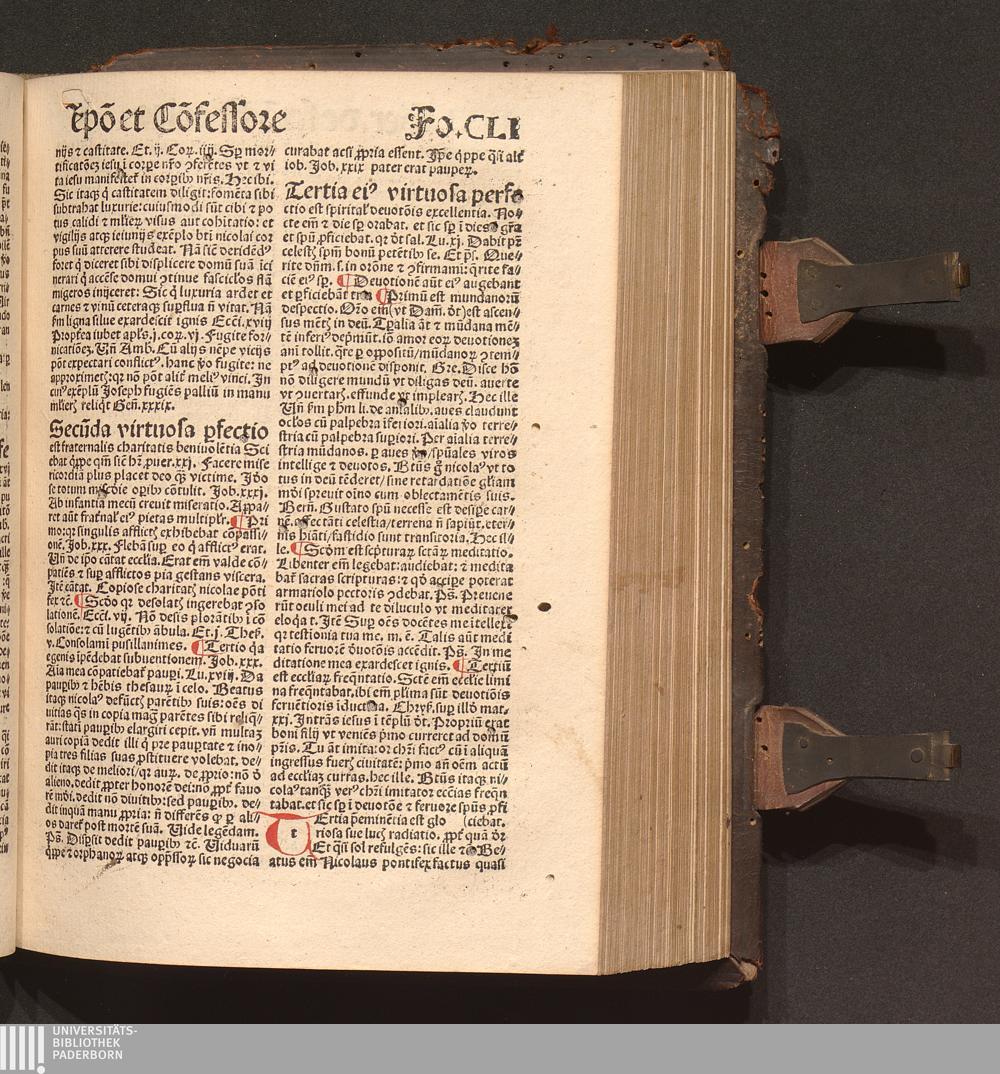 ep̄o et Cōfessore
Fo.CLI
nijs ⁊ castitate. Et. ij. Coꝝ. iiij. Sꝑ mor⸗
tificatōeꝫ iesu ī coꝛꝑe nr̄o ꝯferētes vt ⁊ vi
ta iesu manifestet᷑ in coꝛꝑibꝰ nr̄is. Hec ibi.
Sic itaqꝫ q̄ castitatem diligit: fomēta sibi
subtrahat luxurie: cuiusmodi sūt cibi ⁊ po
tus calidi ⁊ mĺieꝝ visus aut cohitatio: et
vigilijs atqꝫ ieiunijs exēplo bti nicolai coꝛ
pus suū atterere studeat. Nā siēt deridēdꝰ
foret q̇ diceret sibi displicere domū suā ici
nerari q̇ accēse domui ꝯtinue fasciclos flā
migeros inijceret: Sic q̇ luxuria ardet et
carnes ⁊ vinū ceteraqꝫ suꝑflua nō vitat. Nā
ẜm ligna silue exardescit ignis Ecci. xviij
Propt̄ea iubet apl's. j. coꝛ. vj. Fugite foꝛ⸗
nicationeꝫ. Uñ Amb. Cū alijs nēpe vicijs
pōt expectari conflictꝰ. hanc v̊o fugite: ne
approximetꝫ: qꝛ nō pōt alit᷑ meliꝰ vinci. In
cuiꝰ exēplū Joseph fugiēs palliū in manu
mĺierꝫ reliq̇t Geñ. xxxix.
Secūda virtuosa ꝑfectio
est fraternalis charitatis beniuolētia Sci
ebat q̇ppe qm̄ siēt hꝫ ꝓuer. xxj. Facere mise
ricoꝛdiā plus placet deo q̄ꝫ victime. Iđo
se totum mi⸗cꝺie oꝑibꝰ cōtulit. Job. xxxj.
Ab infantia mecū creuit miseratio. Appa⸗
ret aūt frat̄nal' eiꝰ pietas multiplr̄. ¶ Pri
mo: qꝛ singulis afflictꝫ exhibebat cōpassi⸗
onē. Job. xxx. Flebā suꝑ eo q̇ afflictꝰ erat.
Uñ de ip̄o cātat eccl̄ia. Erat em̄ valde cō⸗
patiēs ⁊ suꝑ afflictos pia gestans viscera.
Itē cātat. Copiose charitatꝫ nicolae pōti
fex ⁊c̄. ¶ Scꝺo qꝛ desolatꝫ ingerebat ꝯso
lationē. Ecci. vij. Nō desis ploꝛātibꝰ ī cō
solatiōe: ⁊ cū lugētibꝰ ābula. Et. j. Thess.
v. Consolamī pusillanimes. ¶ Tertio q̇a
egenis īpēdebat subuentionem. Job. xxx.
Aīa mea cōpatiebat᷑ pauꝑi. Lu. xviij. Da
pauꝑibꝰ ⁊ hēbis thesauꝝ ī celo. Beatus
itaqꝫ nicolaꝰ defūctꝫ parētibꝰ suis: oēs di
uitias q̄s in copia mag̊ parētes sibi reliq̇⸗
rāt: statī pauꝑibꝰ elargiri cepit. vñ multaꝫ
auri copiā dedit illi q̇ pre pauꝑtate ⁊ ino⸗
pia tres filias suas ꝓstituere volebat. de⸗
dit itaqꝫ de meliori: qꝛ auꝝ. de ꝓprio: nō ꝺ
alieno. dedit ꝓpter honoꝛē dei: nō ꝓpt᷑ fauo
rē mōi. dedit nō diuitibꝰ: sed pauꝑibꝰ. de⸗
dit inquā manu ꝓpria: ñ differēs ꝙ ꝑ ali⸗
os daret᷑ post moꝛtē suā. Uide legēdam.
Ps̄. Disꝑsit dedit pauꝑibꝰ ⁊c̄. Uiduaꝛū
q̇ppe ⁊ oꝛphanoꝝ atqꝫ opp̄ssoꝝ sic negocia
curabat acsi ꝓpria essent. Ip̄e q̇ppe q̄si alt᷑
iob. Job. xxix pater erat pauꝑeꝝ.
Tertia eiꝰ virtuosa perfe
ctio est spirital' deuotōis excellentia. No⸗
cte em̄ ⁊ die sꝑ oꝛabat. et sic sꝑ ī dies ꝺ gr̄a
et spū ꝓficiebat. qꝛ ꝺt sal. Lu. xj. Dabit pr̄
celestꝫ spm̄ bonū petētibꝰ se. Et ps̄. Que⸗
rite dn̄m. s. in oꝛōne ⁊ ꝯfirmami: q̄rite fa⸗
ciē eiꝰ sꝑ. ¶ Deuotionē aūt eiꝰ augebant
et ꝑficiebāt tria ¶ Primū est mundanoꝛū
despectio. Oꝛō em̄ (vt Dam̄. ꝺt) est ascen⸗
sus mētꝫ in deū. Tꝑalia āt ⁊ mūdana mē⸗
tē inferiꝰ deꝓmūt. iō amoꝛ eoꝝ deuotioneꝫ
aīi tollit. q̄re ꝑ oꝓpositū/ mūdanoꝝ ꝯtem⸗
ptꝰ ad deuotionē disponit. Gre. Disce hō
nō diligere mundū vt diligas deū. auerte
vt ꝯuertarꝫ. effunde vt implearꝫ. Hec ille
Uñ ẜm phm̄ li. de aīalibꝰ. aues claudunt
oclos cū palpebra īferioꝛi. aīalia v̊o terre⸗
stria cū palpebra suꝑioꝛi. Per aīalia terre⸗
stria mūdanos. ꝑ aues v̊o/ spūales viros
intellige ⁊ deuotos. Btūs g̊ nicolaꝰ vt to
tus in deū tēderet/ sine retardatiōe gl̄iam
mōi spreuit oīno cum oblectamētis suis.
Berñ. Gustato spū necesse est desiꝑe car⸗
nē. affectāti celestia/ terrena ñ sapiūt. eter⸗
nis hiāti/ fastidio sunt transitoꝛia. Hec il⸗
le. ¶ Scꝺm est sc̄pturaꝝ sctāꝝ meditatio.
Libenter em̄ legebat: audiebat: ⁊ medita
bat᷑ sacras scripturas: ⁊ qꝺ accipe poterat
armariolo pectoꝛis ꝯdebat. Ps̄. Preuene
rūt oculi mei ad te diluculo vt meditarer
eloq̇a t. Itē Suꝑ oēs docētes me itellexi
qꝛ testīonia tua me. m. ē. Talis aūt medi
tatio feruoꝛē ꝺuotōis accēdit. Ps̄. In me
ditatione mea exardescet ignis. ¶ Tertiū
est eccl̄iaꝝ freq̄ntatio. Sctē em̄ eccl̄ie limi
na freq̄ntabat. ibi em̄ pĺima sūt deuotiōis
feruētioꝛis iductiua. Chryß. suꝑ illꝺ mat.
xxj. Intrās iesus ī tēplū ꝺt. Propriū erat
boni filij vt veniēs ꝑmo curreret ad domū
pr̄is. Tu āt imita: oꝛ chr̄i factꝰ cū ī aliquā
ingressus fuerꝫ ciuitatē: ꝑmo añ oēm actū
ad eccl̄iaꝫ curras. hec ille. Btūs itaqꝫ ni⸗
colaꝰ tanq̄ꝫ verꝰ chr̄i imitatoꝛ ecc̄ias freq̄n
tabat. et sic sꝑ ī deuotōe ⁊ feruoꝛe spūs ꝓfi
TErtia p̄eminētia est glo (ciebat.
riosa sue lucꝫ radiatio. ꝓpt᷑ quā ꝺr̄
Et q̄si sol refulgēs: sic ille ⁊c̄ Be⸗
atus em̄ Nicolaus pontifex factus quasi
UNIVERSITÄTS-
BIBLIOTHEK
PADERBORN